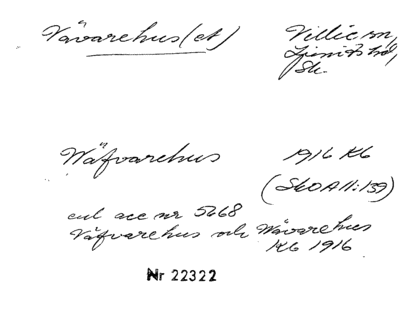 Vävarehus(et)
Villie sn,
Ljunits hd,
Sk.
Wäfvarehus 1916 Kb
(SkOA11:139)
enl acc nr 5668
Väfvarehus och Wävarehus
Kb 1916
Nr 22322